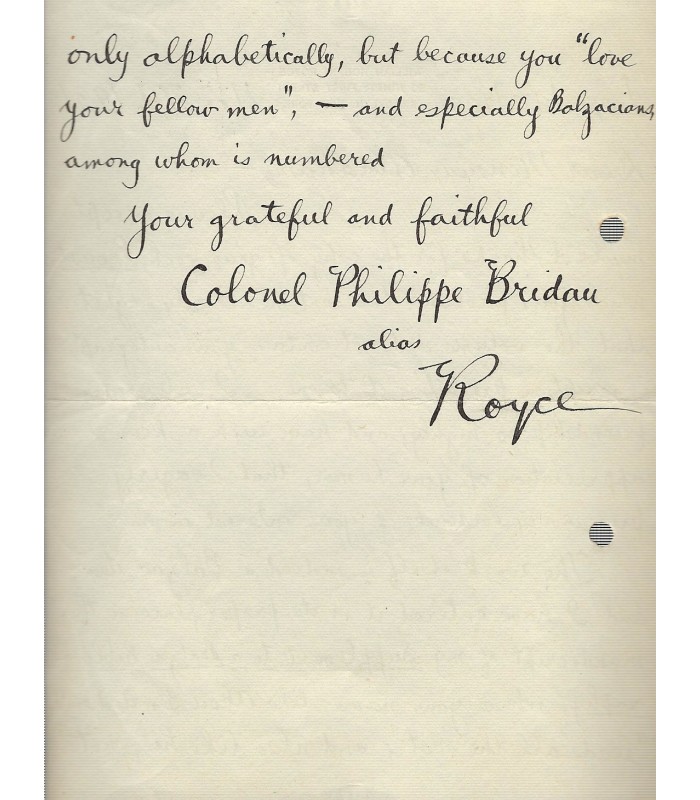 only alphabetically, but because you "love
your fellow men", — and especially Balzacians,
among whom is numbered
Your grateful and faithful
Colonel Philippe Bridau
alias
Royce